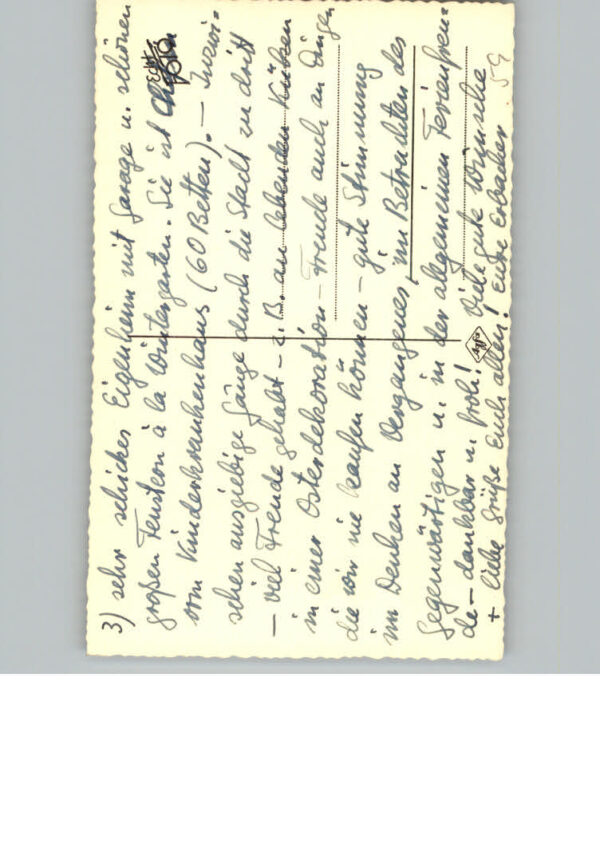 3) sehr schickes Eigenheim mit Garage u. schönen
großen Fenstern à la Wintergarten. Sie ist Chefin
vom Kinderkrankenhaus (60 Betten). – Inzwi=
schen ausgiebige Gänge durch die Stadt zu dritt
– viel Freude gehabt – z. B. an lebenden Küken
in einer Osterdekoration – Freude auch an Dingen
die wir nie kaufen können – gute Stimmung
im Denken an Vergangenes, im Betrachten des
Gegenwärtigen u. in der allgemeinen Ferienfreu=
de – dankbar u. froh! Viele gute Wünsche
+ liebe Grüße Euch allen! Eure Erbacher
59
Echt
Foto
Agfa